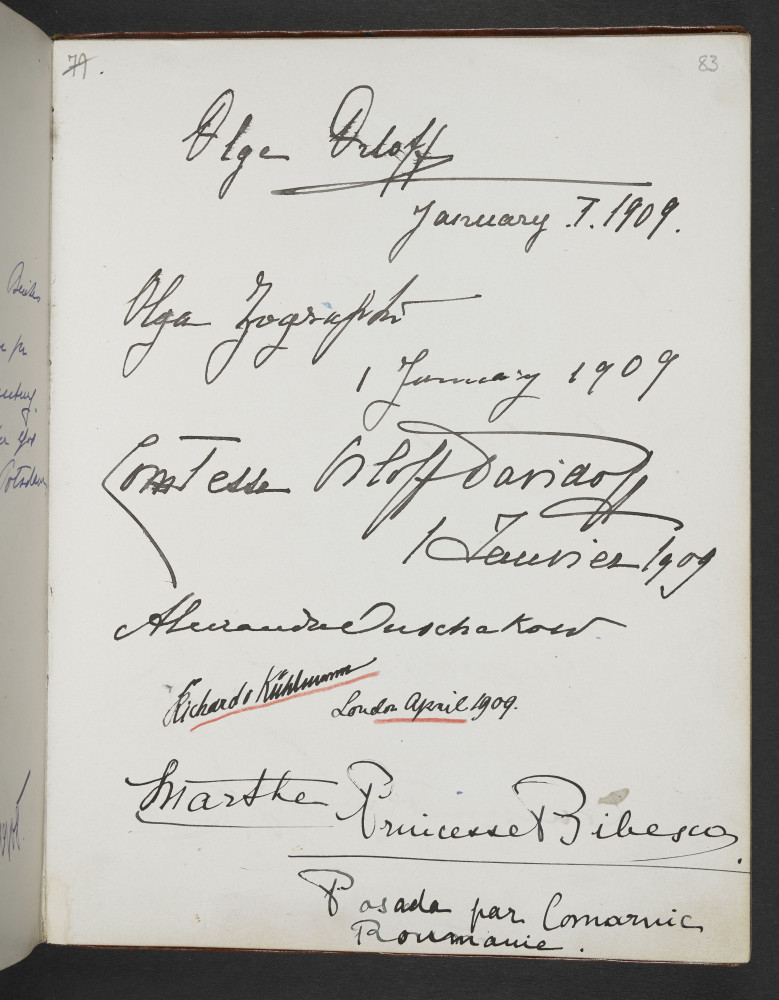 7A.
83
Olga Orloff
January. I. 1909.
Olga Zographo
1 January 1909
Comtesse Orloff Davidoff
1 Janvier 1909
Alexandre Ouschakow
Richard v Kühlmann
London April 1909.
Marthe Princesse Bibesco.
Posada par Comarnic
Roumanie.